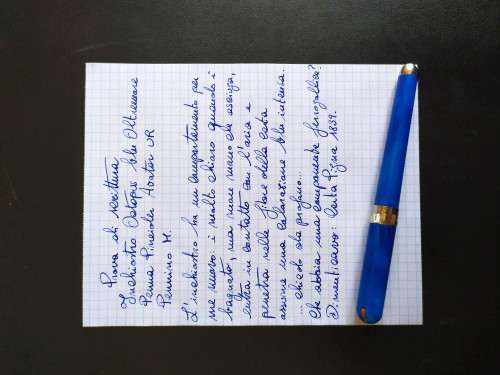 Prova di scrittura
Inchiostro Octopus blu Oltremare
Penna Pineider Avatar UR
Pennino M.
L'inchiostro ha un comportamento per
me nuovo: è molto chiaro quando è
bagnato, ma mano mano che asciuga,
entra in contatto con l'aria e
penetra nelle fibre della carta
assume una colorazione blu intensa.
... chiedo da profano...
Che abbia una componente ferrogallica?
Dimenticavo: Carta Pigna 1839.